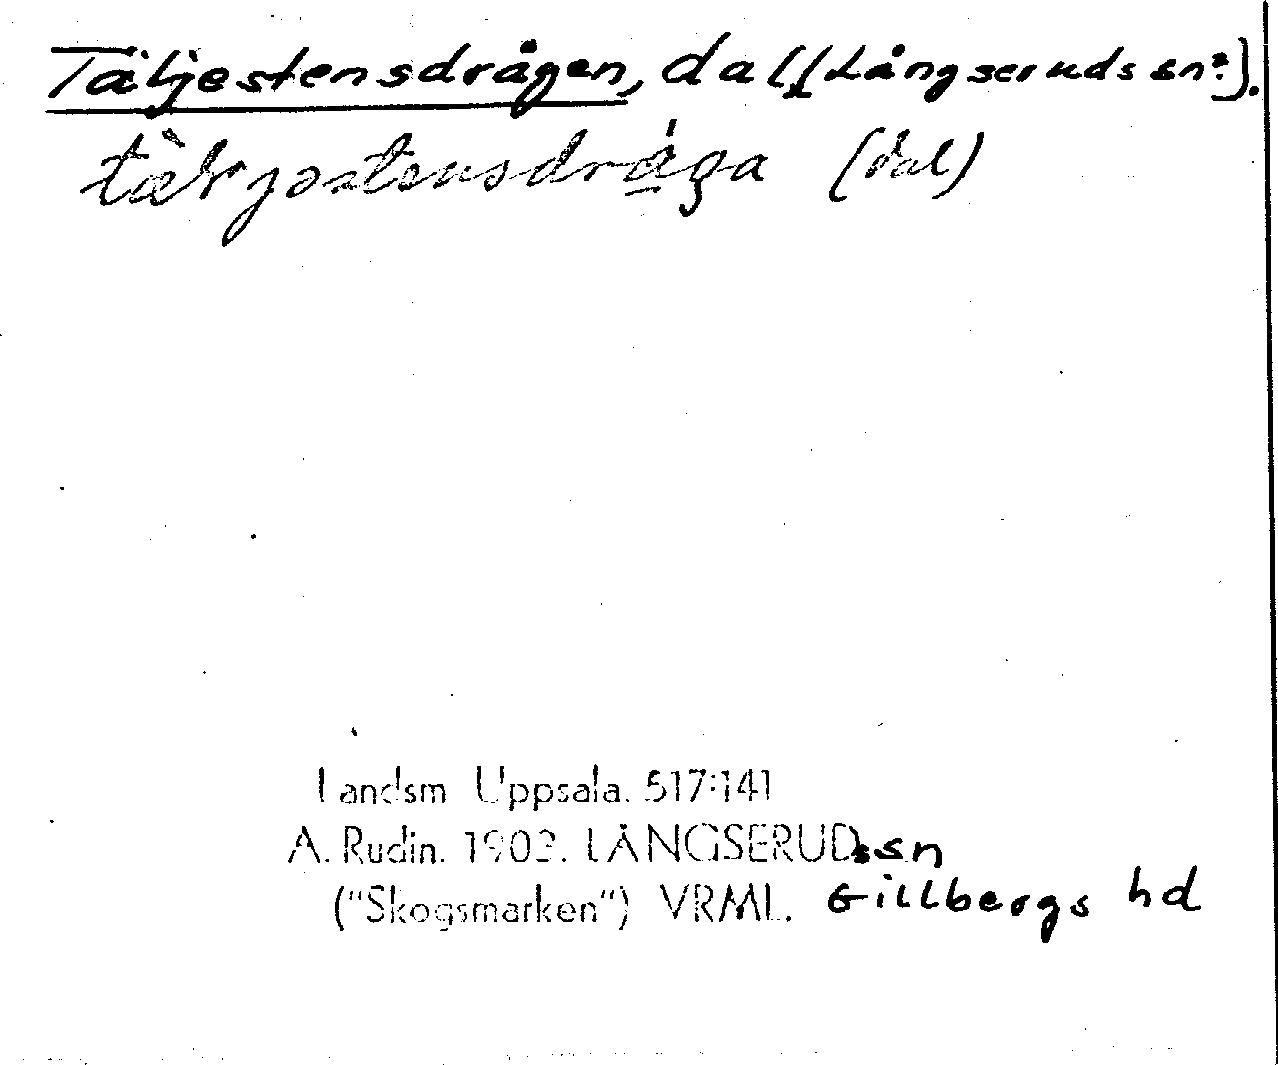 Täljestensdrågen, dal [Långseruds sn?].
(dal)
Landsm Uppsala. 517:141
A. Rudin. 1902. LÅNGSERUDs sn
("Skogsmarken") VRML. Gillbergs hd